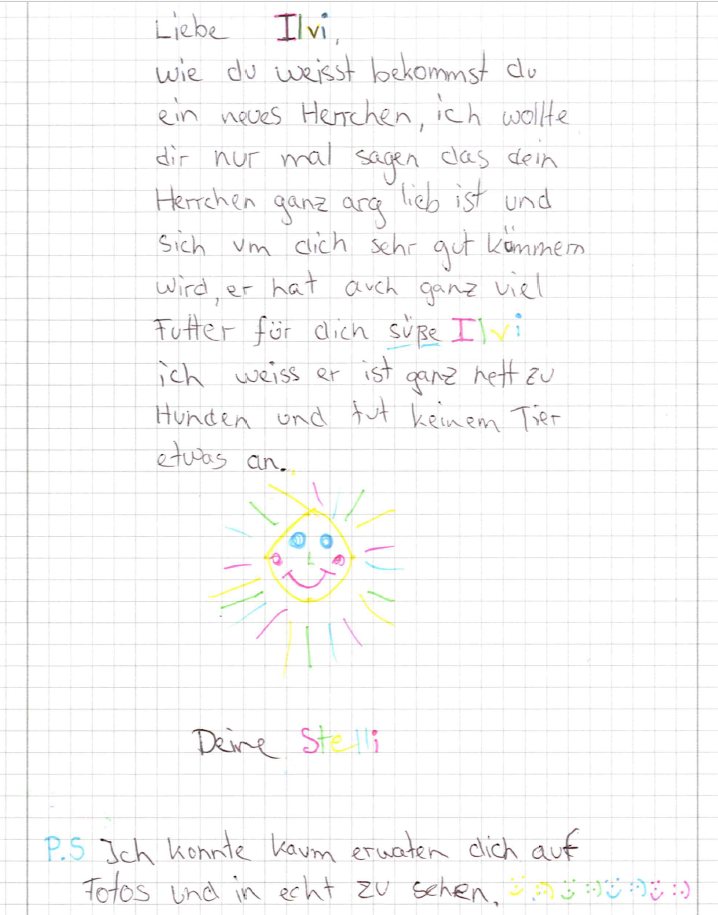 Liebe Ilvi,
wie du weisst bekommst du
ein neues Herrchen, ich wollte
dir nur mal sagen das dein
Herrchen ganz arg lieb ist und
sich um dich sehr gut kümmern
wird, er hat auch ganz viel
Futter für dich süße Ilvi
ich weiss er ist ganz nett zu
Hunden und tut keinem Tier
etwas an.
Deine Stelli
P.S Ich konnte kaum erwaten dich auf
Fotos und in echt zu sehen. :) :) :) :) :) :) :) :)